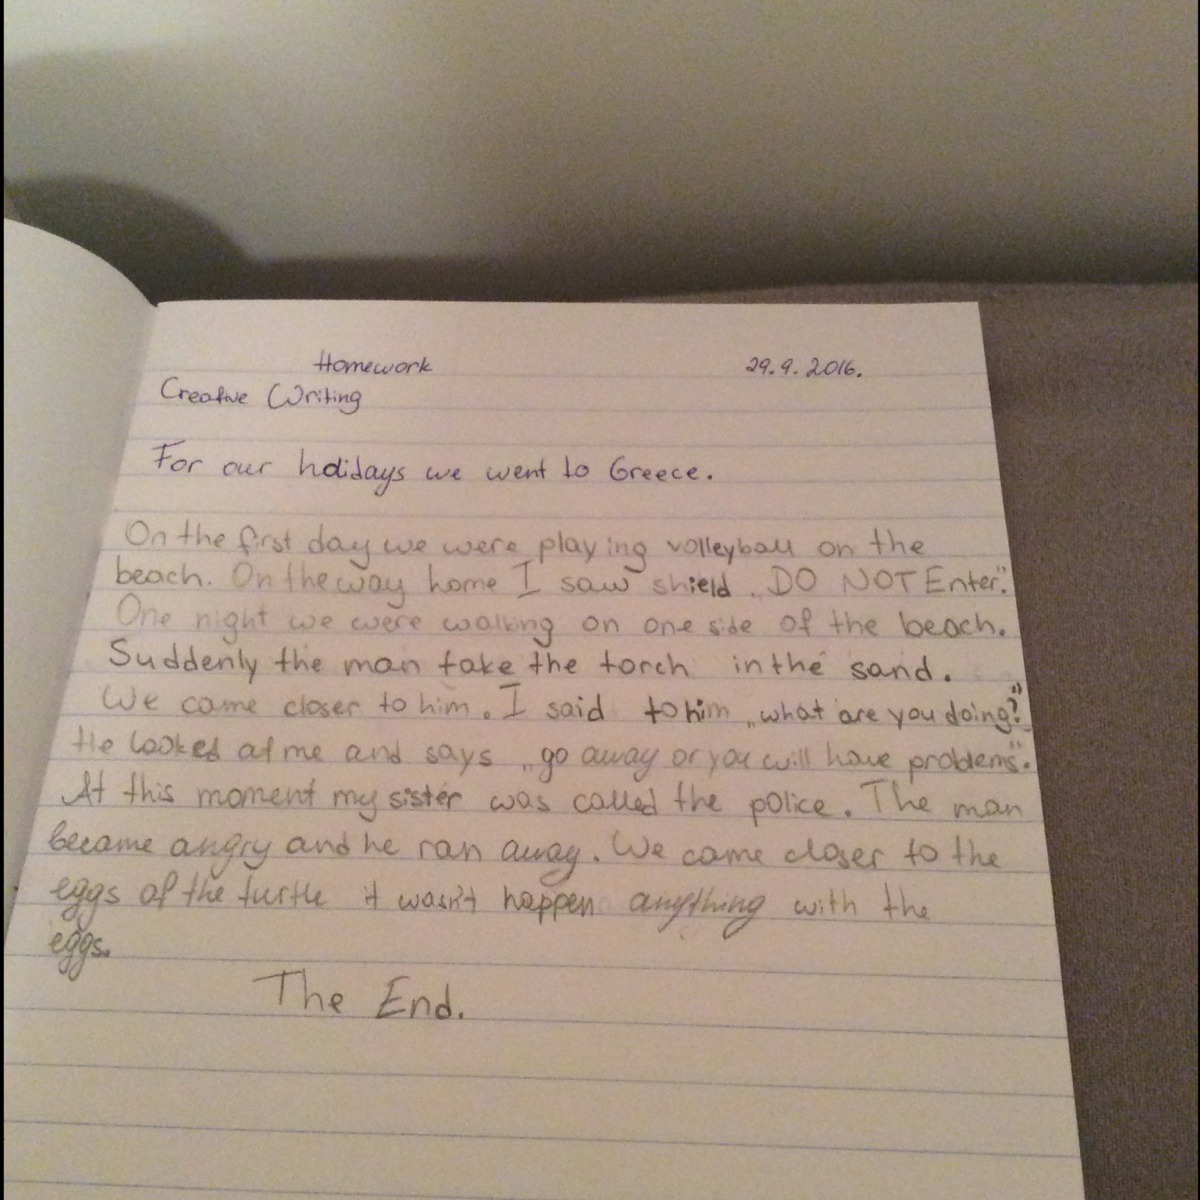 Homework 29.9.2016.
Creative Writing
For our holidays we went to Greece.
On the first day we were playing volleyball on the
beach. On the way home I saw shield „DO NOT Enter".
One night we were walking on one side of the beach.
Suddenly the man take the torch in the sand.
We came closer to him. I said to him „what are you doing?"
He looked at me and says „go away or you will have problems".
At this moment my sister was called the police. The man
became angry and he ran away. We came closer to the
eggs of the turtle it wasn't happen anything with the
eggs.
The End.